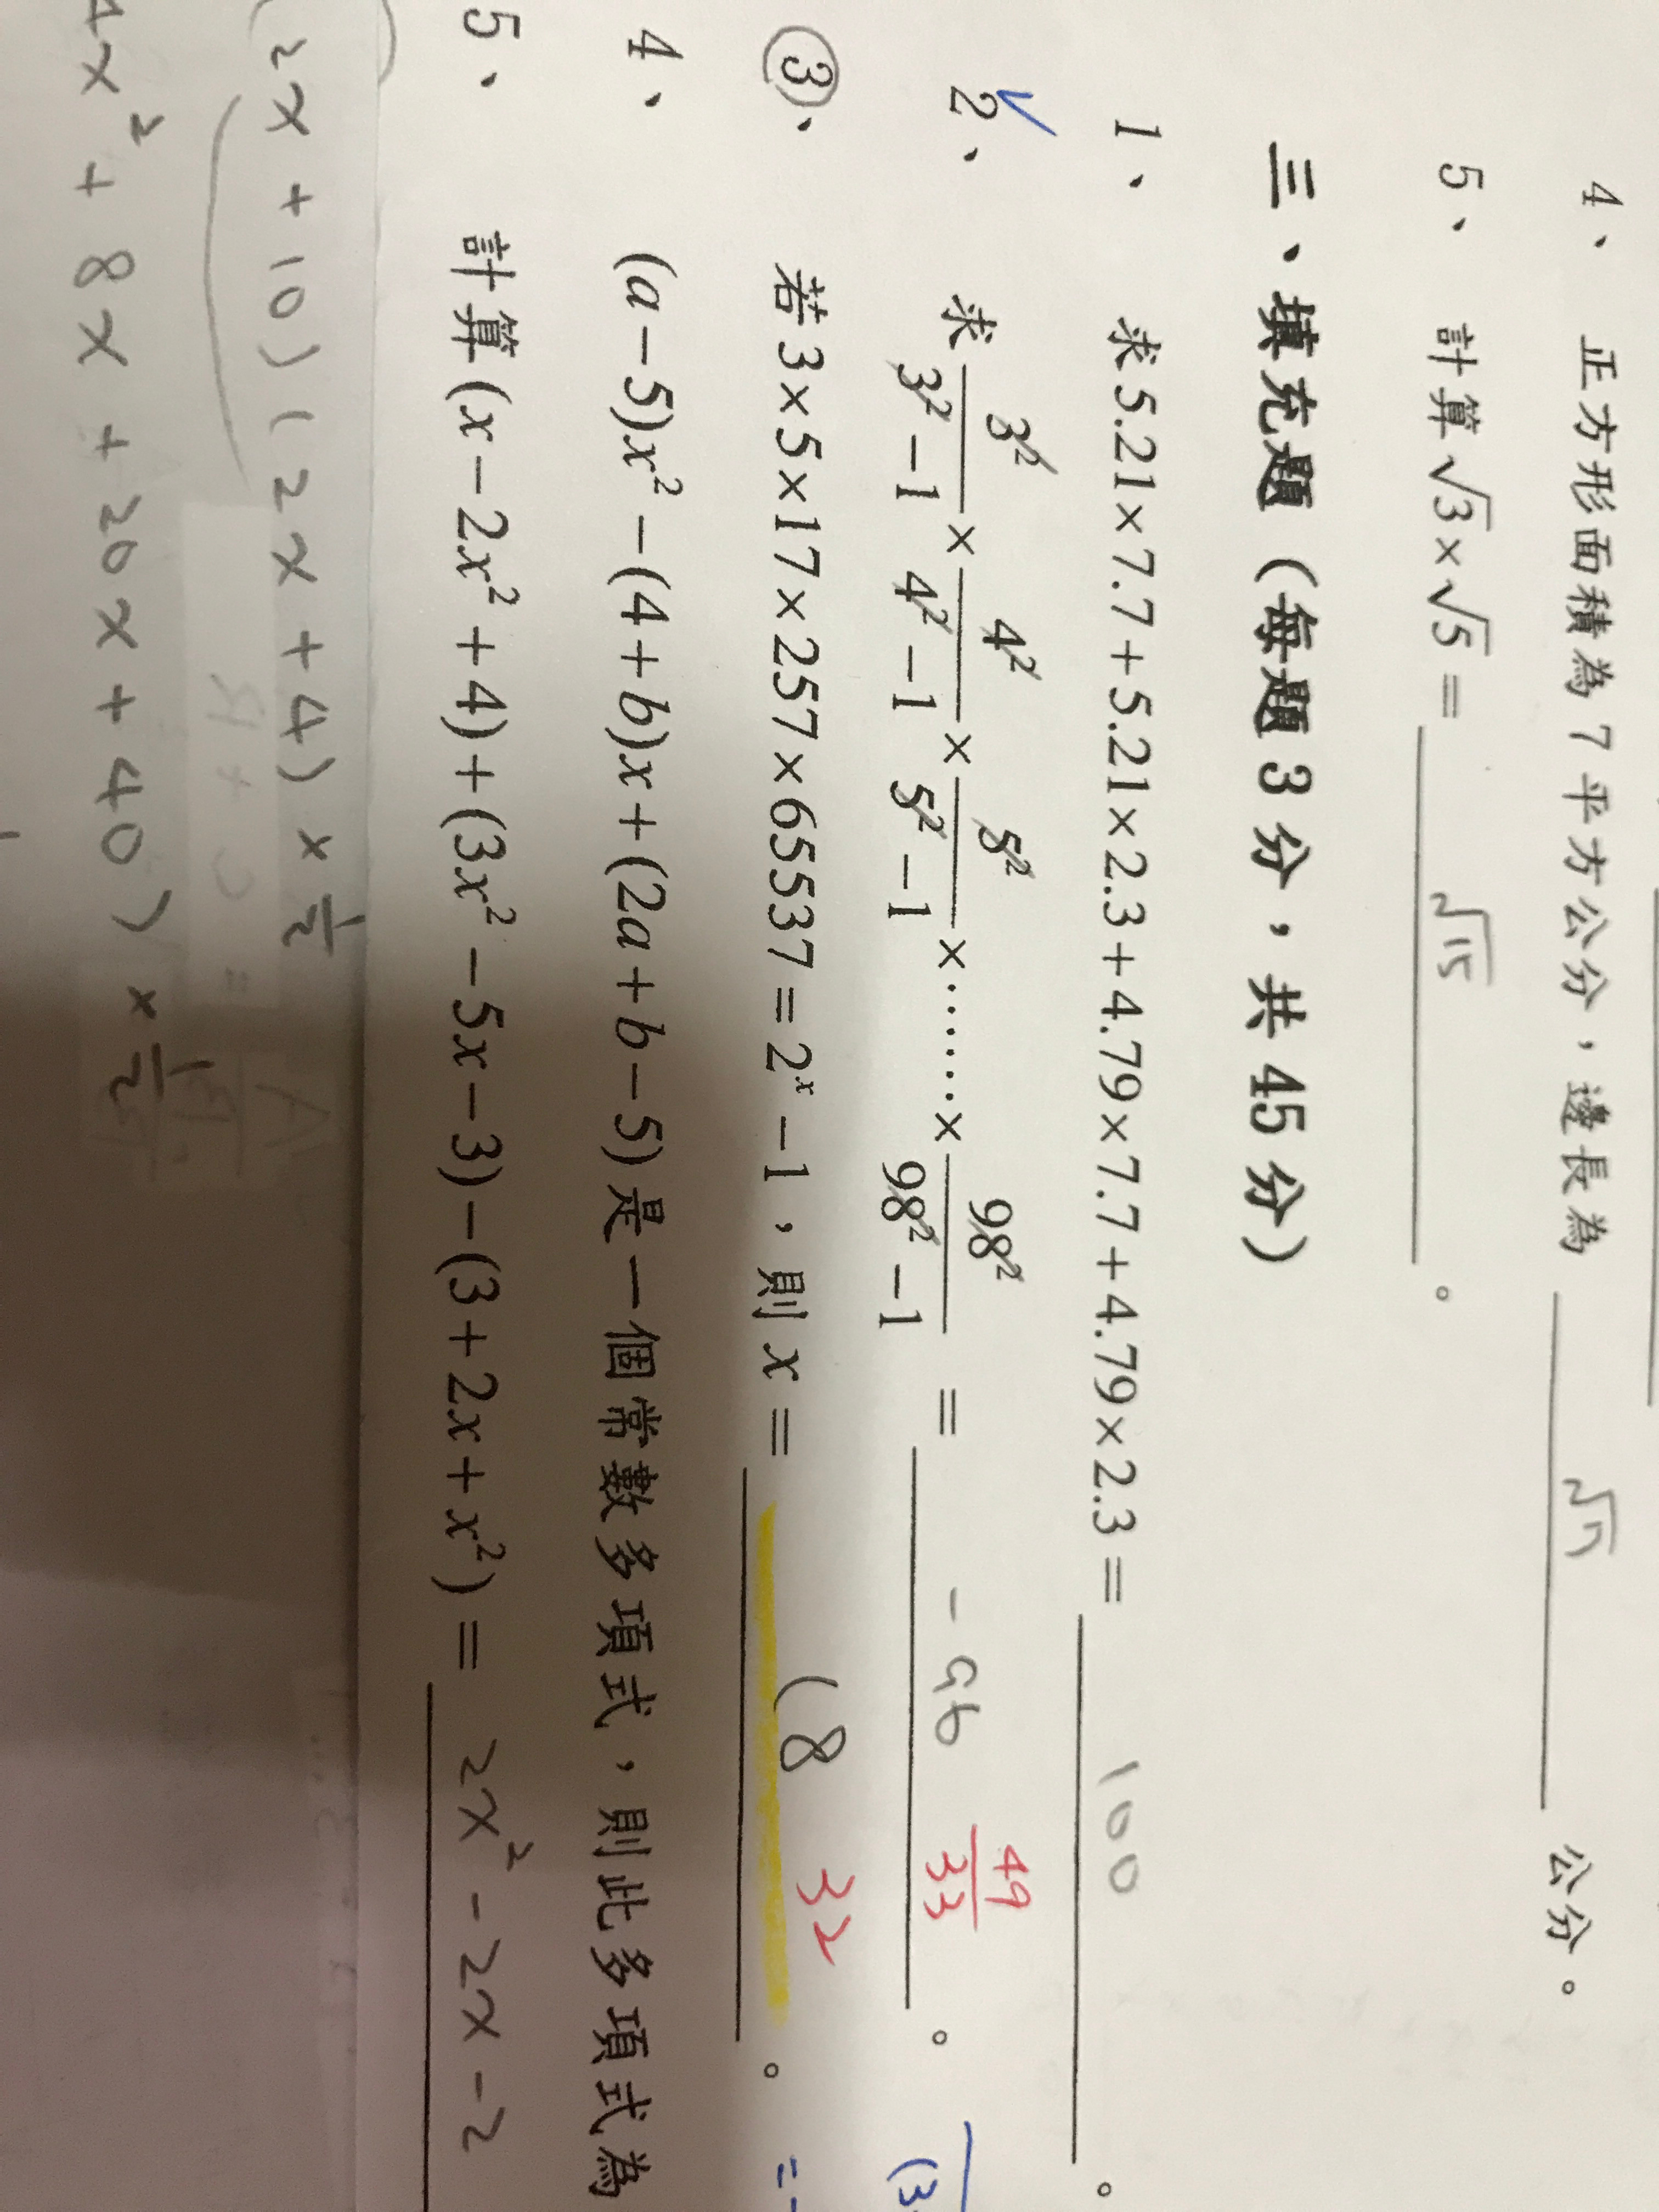 4、 正方形面積為 7 平方公分，邊長為 √7 公分。
5、 計算 √3×√5 = √15 。
三、填充題（每題 3 分，共 45 分）
1、 求 5.21×7.7+5.21×2.3+4.79×7.7+4.79×2.3 = 100 。
2、 求 3²/(3²−1) × 4²/(4²−1) × 5²/(5²−1) ×……× 98²/(98²−1) = -96 49/33 。
③、 若 3×5×17×257×65537=2ˣ−1，則 x = (8 32 。 =
4、 (a−5)x²−(4+b)x+(2a+b−5) 是一個常數多項式，則此多項式為
5、 計算 (x−2x²+4)+(3x²−5x−3)−(3+2x+x²) = 2x²-2x-2
(2x+10)(2x+4)×1/2
4x²+8x+20x+40)×1/2